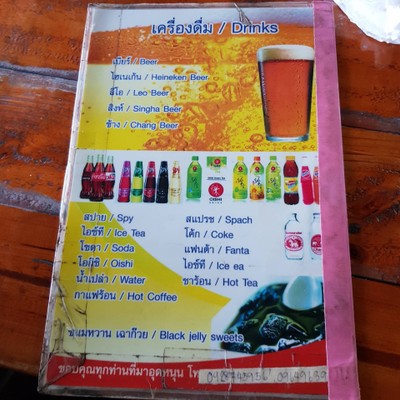 เครื่องดื่ม / Drinks
เบียร์ / Beer
ไฮเนเก้น / Heineken Beer
ลีโอ / Leo Beer
สิงห์ / Singha Beer
ช้าง / Chang Beer
OISHI
สปาย / Spy
ไอซ์ที / Ice Tea
โซดา / Soda
โออิชิ / Oishi
น้ำเปล่า / Water
กาแฟร้อน / Hot Coffee
สแปรช / Spach
โค้ก / Coke
แฟนต้า / Fanta
ไอซ์ที / Ice ea
ชาร้อน / Hot Tea
ขนมหวาน เฉาก๊วย / Black jelly sweets
ขอบคุณทุกท่านที่มาอุดหนุน โท